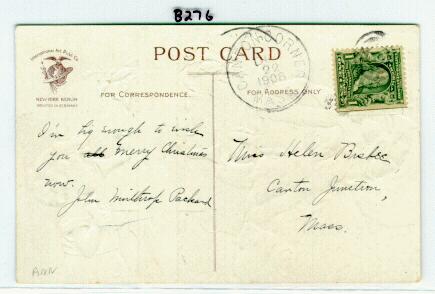 B276
International Art Publ. Co.
NEW YORK BERLIN
PRINTED IN GERMANY
POST CARD
FOR CORRESPONDENCE
FOR ADDRESS ONLY
CORNER
22
1908
MASS
I'm big enough to wish
you all merry Christmas
now.
John Winthrop Packard
Miss Helen Bisbee
Canton Junction,
Mass.